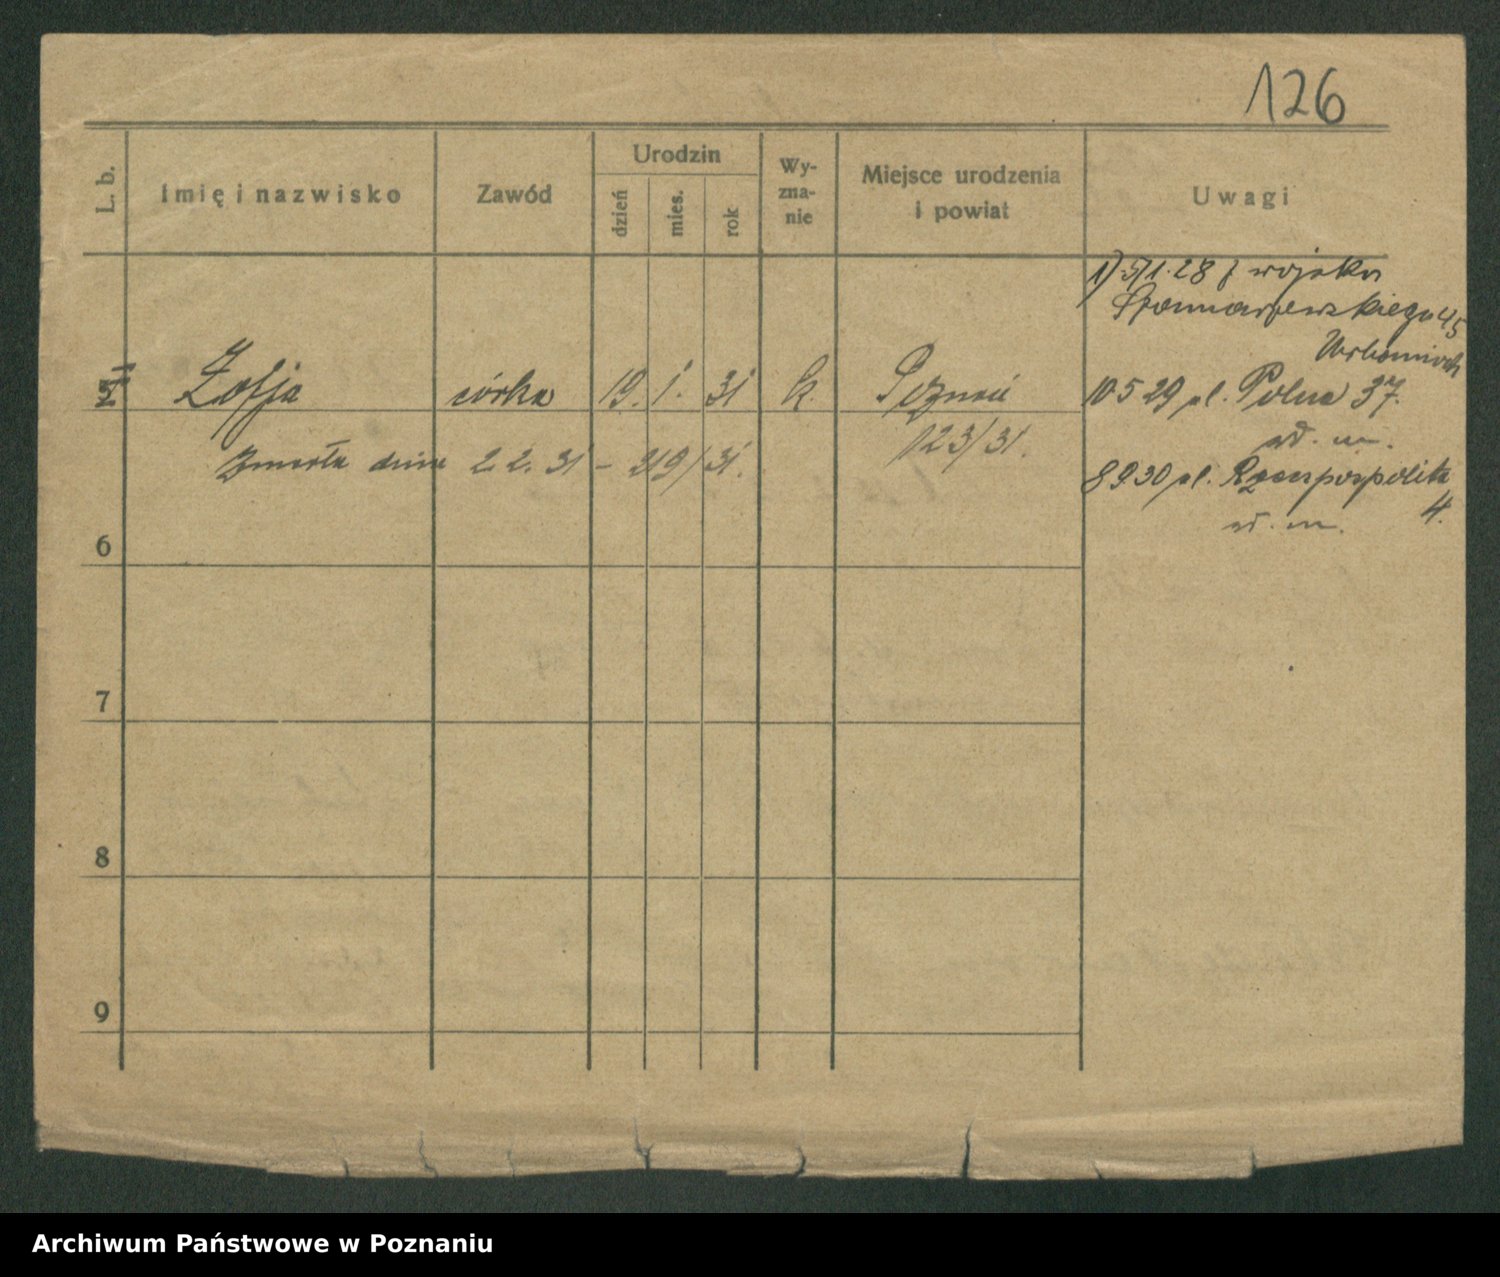 126
L. b.
Imię i nazwisko
Zawód
Urodzin
dzień
mies.
rok
Wy-
zna-
nie
Miejsce urodzenia
i powiat
Uwagi
1) 5/1.28 z wojska
45
10 5 29 pl. Polna 37.
wł. m.
8 9 30 pl. Rzeczpospolita
4.
wł. m.
5 Zofja córka 19. 1. 31 k. Poznań
123/31.
Zmarła dnia 2. 2. 31 - 219/31.
6
7
8
9
Archiwum Państwowe w Poznaniu